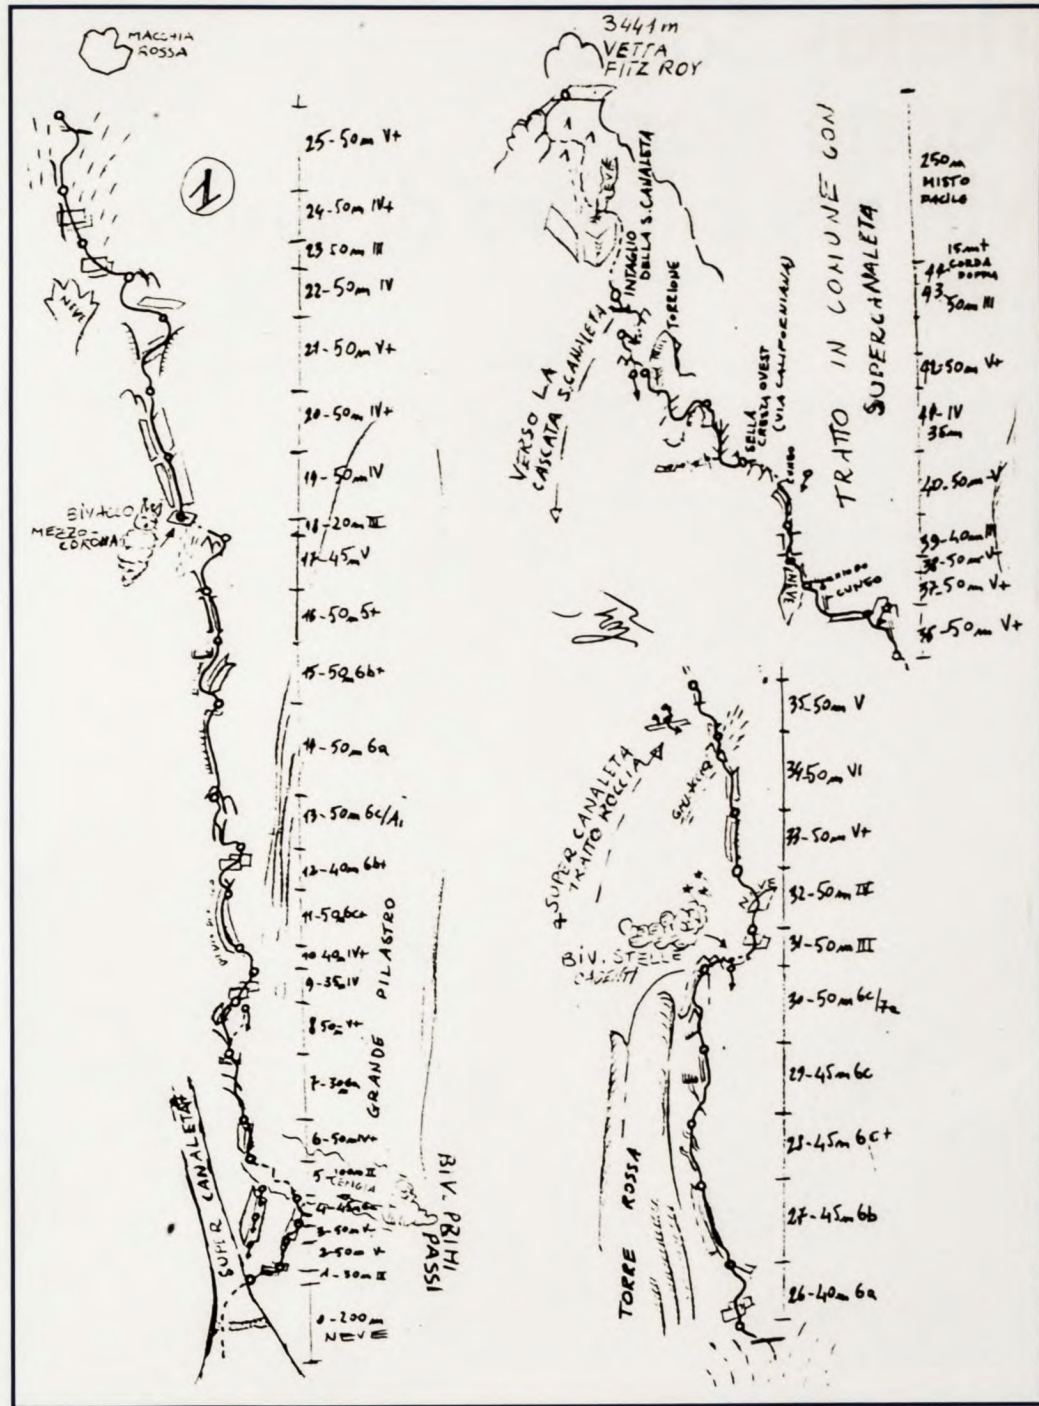 MACCHIA
ROSSA
1
25-50m V+
24-50m IV+
23 50m III
22-50m IV
21-50m V+
20-50m IV+
19-50m IV
18-20m III
17-45m V
16-50m 5+
15-50m 6b+
14-50m 6a
13-50m 6c/A1
12-40m 6b+
11-50m 6c+
10-40m IV+
9-35m IV
8 50m V+
7-30m
6-50m IV+
5-100m II
CENGIA
4-45m 6c
3-50m V
2-50m V
1-30m II
0-200m
NEVE
NEVE
BIVACCO
MEZZO-
CORONA
GRANDE PILASTRO
BIV. PRIMI
PASSI
SUPER CANALETA
3441m
VETTA
FITZ ROY
NEVE
INTAGLIO
DELLA S.CANALETA
TORRIONE
VERSO LA
CASCATA S.CANALETA
SELLA
CRESTA OVEST
(VIA CALIFORNIANA)
CUNEO
NEVE
CUNEO
TRATTO IN COMUNE CON
SUPERCANALETA
250m
MISTO
FACILE
15mt
44- CORDA
DOPPIA
43-
50m III
42-50m V+
41-IV
35m
40-50m V
39-40m III
38-50m V
37-50m V+
36-50m V+
35-50m V
34-50m VI
33-50m V+
32-50m IV
31-50m III
30-50m 6c/7a
29-45m 6c
28-45m 6c+
27-45m 6b
26-40m 6a
SUPER CANALETA
TRATTO ROCCIA
NEVE
BIV. STELLE
CADENTI
TORRE ROSSA